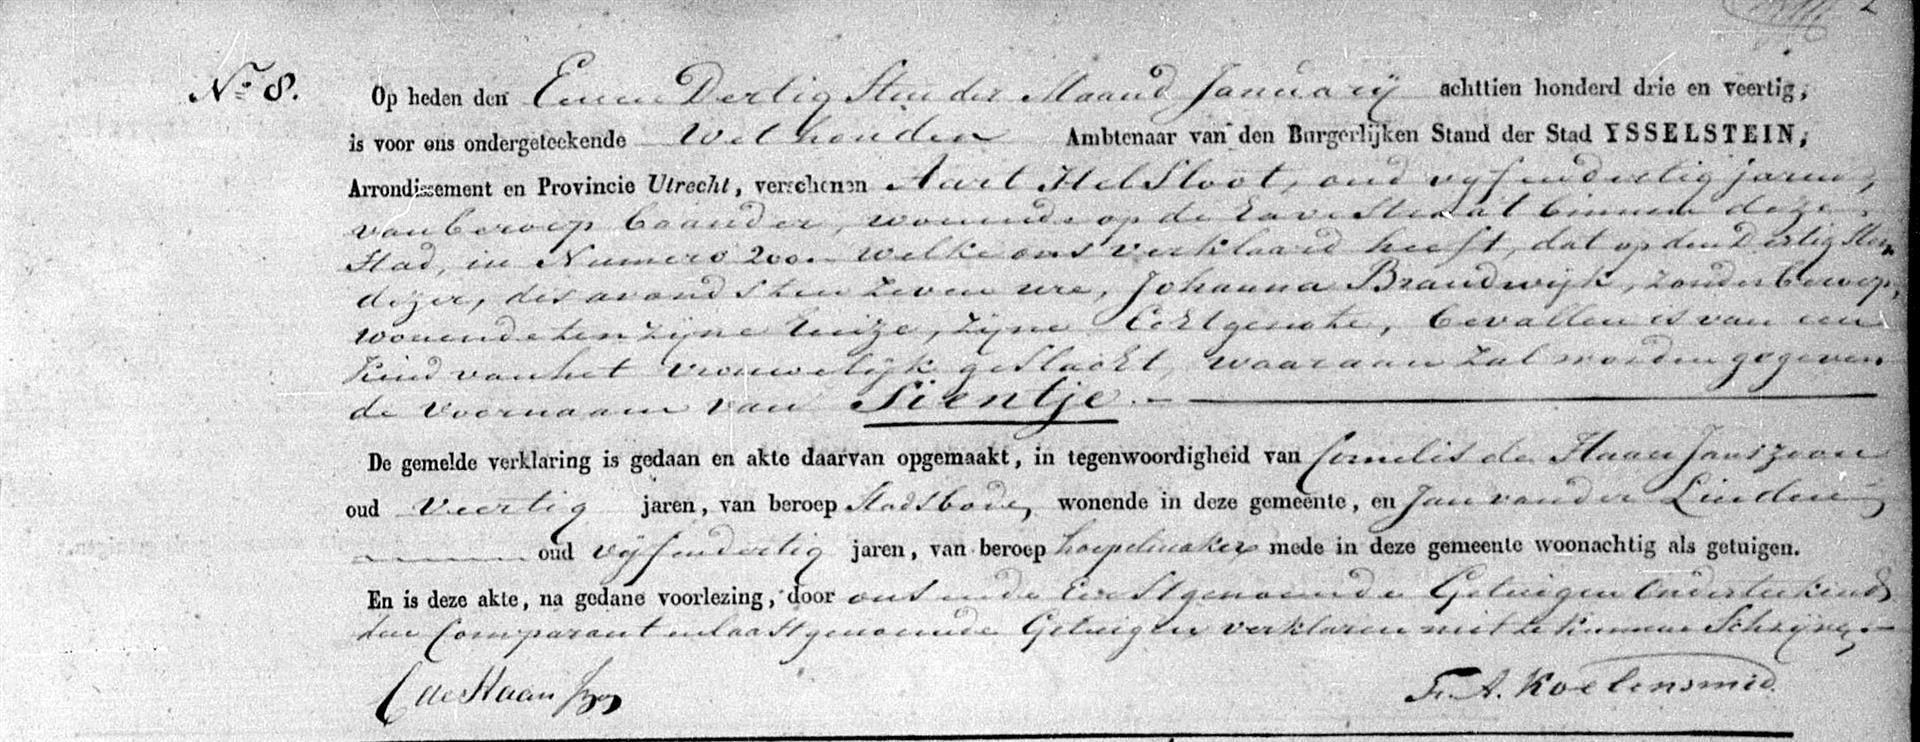 No. 8.
Op heden den Eenen Dertig Sten der Maand January achttien honderd drie en veertig,
is voor ons ondergeteekende Wethouden Ambtenaar van den Burgerlijken Stand der Stad YSSELSTEIN,
Arrondissement en Provincie Utrecht, verschenen Aart Helsloot, oud vyfendertig jaren,
van beroep bouwer, wonende op de Havestraat binnen deze
Stad, in Numero 200. Welke ons verklaard heeft, dat op den Dertigsten
dezer, des avonds ten zeven ure, Johanna Brandwijk, zonder beroep,
wonende ten zyne huize, zyne Echtgenote, bevallen is van een
Kind van het vrouwelijk geslacht, waaraan zal worden gegeven
de voornaam van Sientje.
De gemelde verklaring is gedaan en akte daarvan opgemaakt, in tegenwoordigheid van Cornelis de Haan Janszoon
oud Veertig jaren, van beroep Stadsbode, wonende in deze gemeente, en Jan van der Linden
oud vyfendertig jaren, van beroep hoepelmaker mede in deze gemeente woonachtig als getuigen.
En is deze akte, na gedane voorlezing, door ons ende Eerstgenoemde Getuigen Onderteekend
den Comparant en laastgenoemde Getuigen verklaren niet te kunnen Schryven
C de Haan Jzn
Fr. A. Koelensmid.